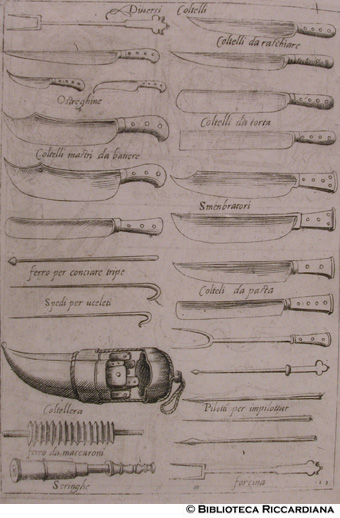 Diversi Coltelli
Coltelli da raschiare
Ostreghine
Coltelli da torta
Coltelli mastri da battere
Smenbratori
ferro per conciare tripe
Spedi per uceleti
Colteli da pasta
Coltellera
Pilotti per impilottar
ferro da maccaroni
Siringhe
forcina
© BIBLIOTECA RICCARDIANA